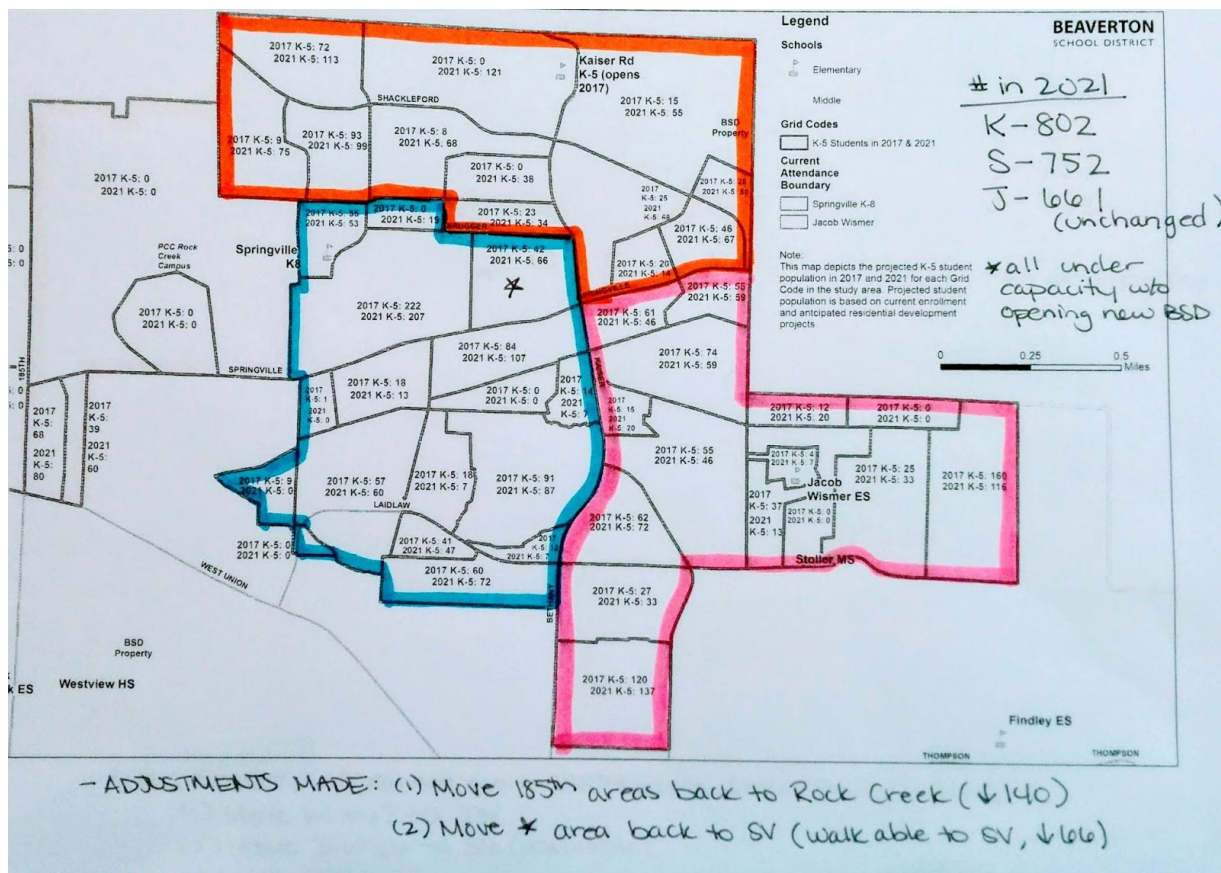 Legend
BEAVERTON
SCHOOL DISTRICT
Schools
Elementary
Middle
Grid Codes
K-5 Students in 2017 & 2021
Current
Attendance
Boundary
Springville K-8
Jacob Wismer
Note:
This map depicts the projected K-5 student
population in 2017 and 2021 for each Grid
Code in the study area. Projected student
population is based on current enrollment
and antcipated residential development
projects.
0 0.25 0.5
Miles
# in 2021
K-802
S-752
J-661
(unchanged)
* all under
capacity w/o
opening new BSD
2017 K-5: 72
2021 K-5: 113
2017 K-5: 0
2021 K-5: 121
Kaiser Rd
K-5 (opens
2017)
SHACKLEFORD
2017 K-5: 15
2021 K-5: 55
BSD
Property
2017 K-5: 9
2021 K-5: 75
2017 K-5: 93
2021 K-5: 99
2017 K-5: 8
2021 K-5: 68
2017 K-5: 0
2021 K-5: 38
2017 K-5: 0
2021 K-5: 0
2017 K-5: 25
2021 K-5:
2017 K-5: 46
2021 K-5: 67
2017 K-5: 20
2021 K-5: 14
2017 K-5: 23
2021 K-5: 34
2017 K-5: 0
2021 K-5: 19
2021 K-5: 53
Springville
K8
PCC Rock
Creek
Campus
2017 K-5: 0
2021 K-5: 0
2017 K-5: 42
2021 K-5: 66
*
2017 K-5: 222
2021 K-5: 207
2021 K-5: 59
2017 K-5: 61
2021 K-5: 46
2017 K-5: 84
2021 K-5: 107
2017 K-5: 74
2021 K-5: 59
SPRINGVILLE
185TH
KAISER
2017 K-5: 18
2021 K-5: 13
2017 K-5: 0
2021 K-5: 0
2017
K-5: 1
2021
K-5: 0
2017
K-5: 14
2021
K-5: 7
2017
K-5: 15
2021
K-5: 20
2017
K-5:
68
2021
K-5:
80
2017
K-5:
39
2021
K-5:
60
2017 K-5: 12
2021 K-5: 20
2017 K-5: 0
2021 K-5: 0
2017 K-5: 55
2021 K-5: 46
2017 K-5: 4
2021 K-5: 7
Jacob
Wismer ES
2017 K-5: 25
2021 K-5: 33
2017 K-5: 160
2021 K-5: 116
2017
K-5: 37
2021
K-5: 13
2017 K-5: 0
2021 K-5: 0
Stoller MS
2017 K-5: 9
2021 K-5: 0
2017 K-5: 57
2021 K-5: 60
LAIDLAW
2017 K-5: 18
2021 K-5: 7
2017 K-5: 91
2021 K-5: 87
2017 K-5: 62
2021 K-5: 72
2017 K-5: 41
2021 K-5: 47
2021 K-5: 7
2017 K-5: 0
2021 K-5: 0
2017 K-5: 60
2021 K-5: 72
WEST UNION
BETHANY
2017 K-5: 27
2021 K-5: 33
BSD
Property
Westview HS
k ES
2017 K-5: 120
2021 K-5: 137
Findley ES
THOMPSON
THOMPSON
- ADJUSTMENTS MADE: (1) Move 185th areas back to Rock Creek (↓140)
(2) Move * area back to SV (walkable to SV, ↓66)